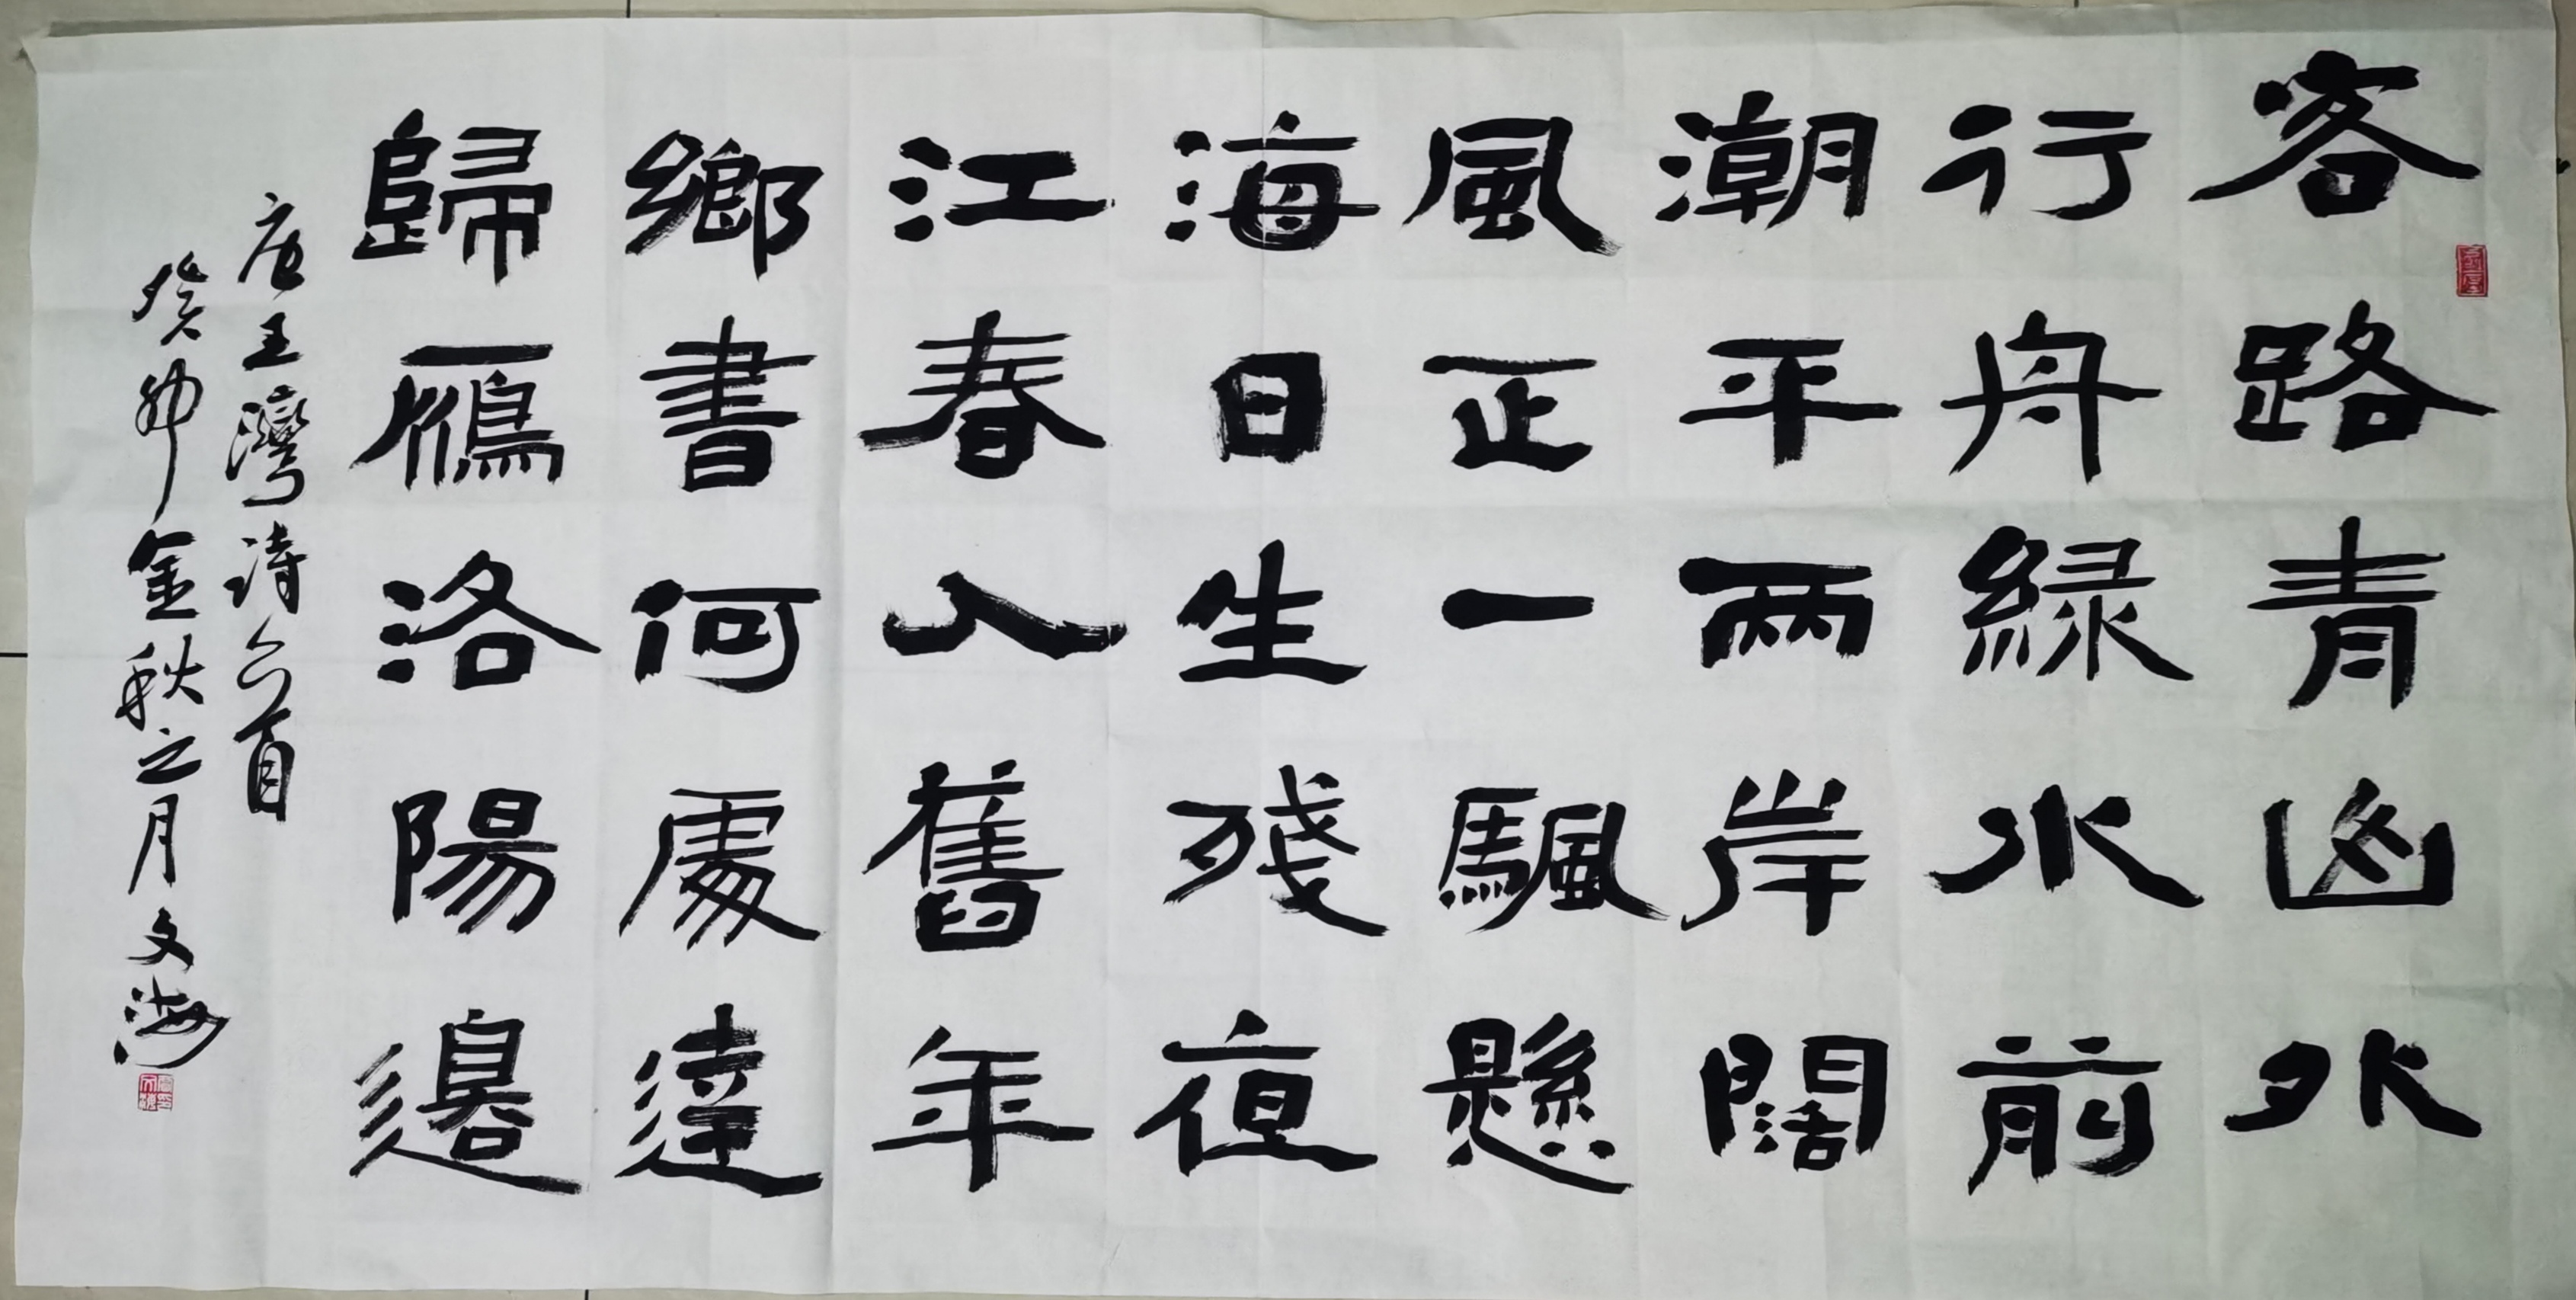 客路青山外
行舟緑水前
潮平两岸闊
風正一颿懸
海日生殘夜
江春入舊年
鄉書何處達
歸鴈洛陽邊
唐王灣詩首
癸卯金秋之月文海